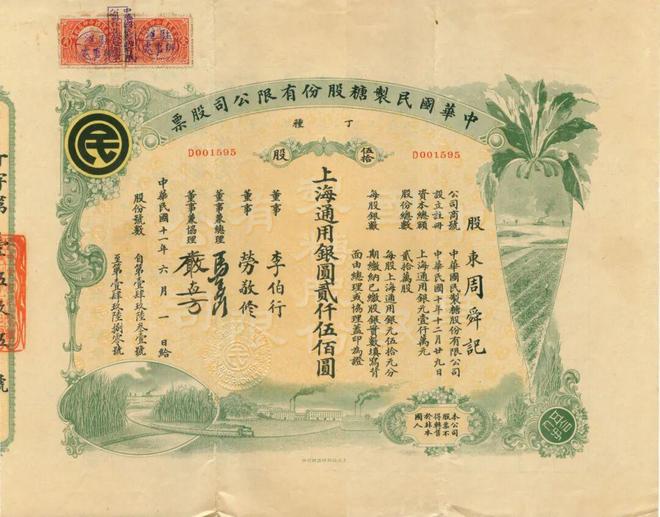 中華國民製糖股份有限公司股票
丁種
D001595
伍拾股
D001595
股東周舜記
公司商號 中華國民製糖股份有限公司
設立註冊 中華民國十年十二月廿九日
資本總額 上海通用銀元壹仟萬元
股份總數 貳拾萬股
每股銀數 每股上海通用銀元伍拾元分
期繳納已繳股銀實數填寫背
面由總理或協理蓋印為證
上海通用銀圓貳仟伍佰圓
董事 李伯行
董事 勞敬修
董事兼總理
董事兼協理
中華民國十一年六月一日給
股份號數 自第壹肆玖陸叁壹號
至第壹肆玖陸捌零號
本公司
股票不
得轉售
於非本
國人
民